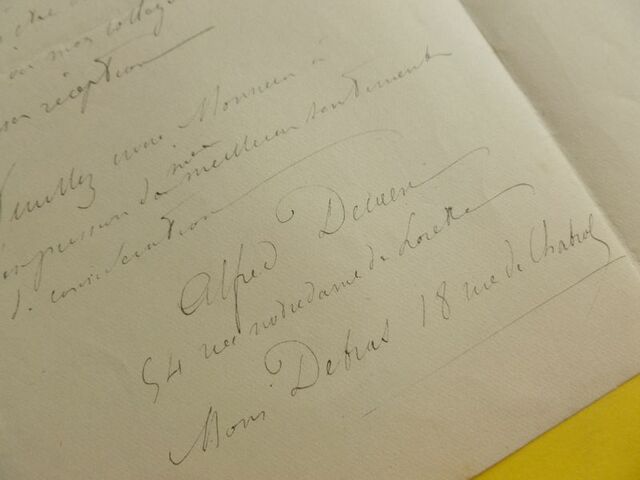 ou mon collège
réception
Veuillez Monsieur
mes
expression de meilleurs sentiments
de considération
Alfred
54 rue notre dame de Lorette
Mons Debras 18 rue de Chabrol